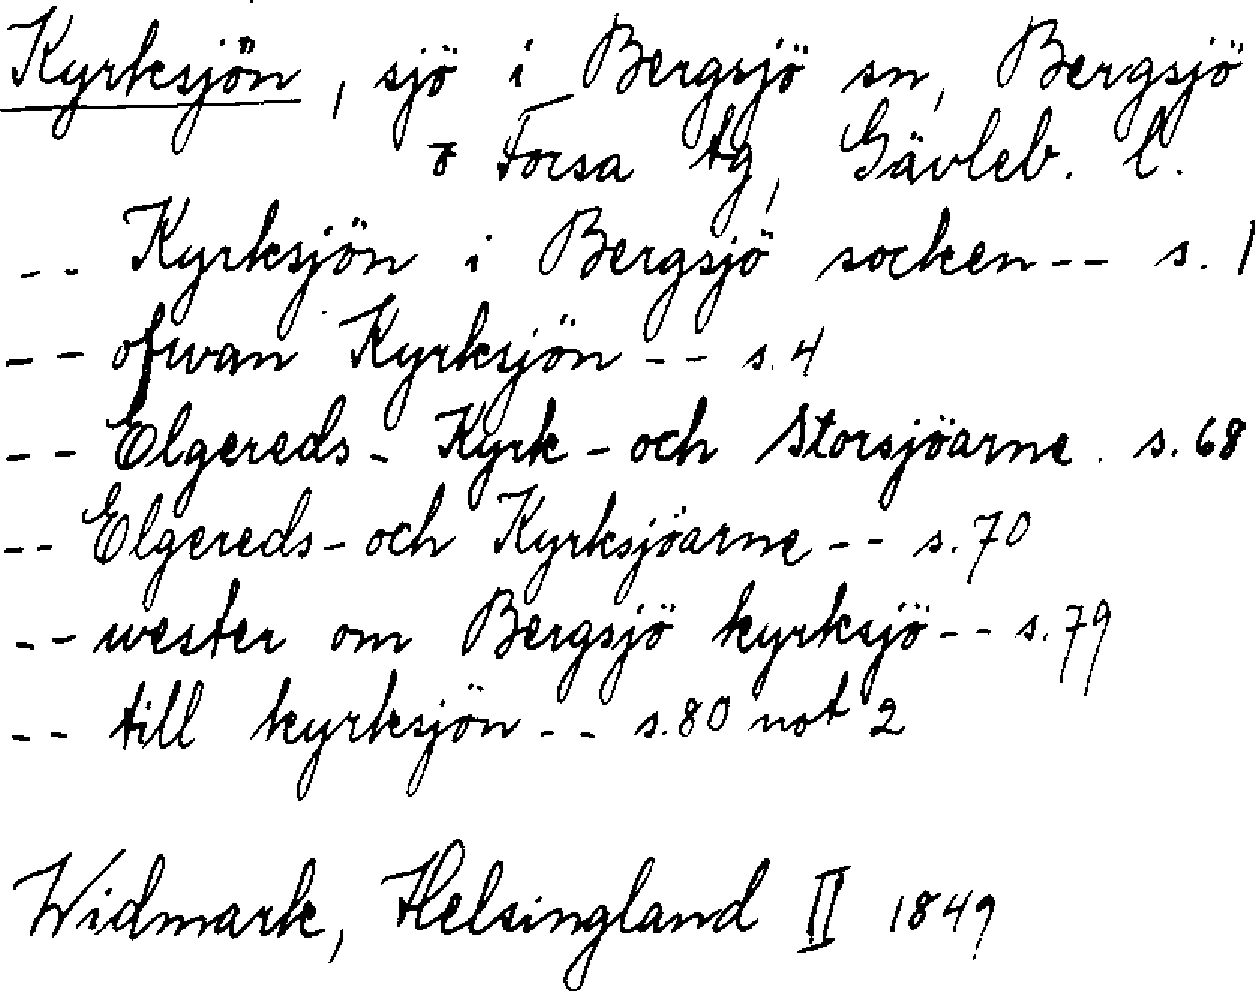 Kyrksjön, sjö i Bergsjö sn, Bergsjö
o Forsa tg, Gävleb. l.
-- Kyrksjön i Bergsjö socken -- s. 1
-- ofwan Kyrksjön -- s. 4
-- Elgereds- Kyrk- och Storsjöarne. s. 68
-- Elgereds- och Kyrksjöarne -- s. 70
-- wester om Bergsjö kyrksjö -- s. 79
-- till kyrksjön -- s. 80 not 2
Widmark, Helsingland II 1849